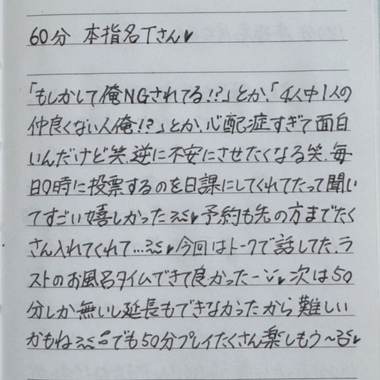 60分 本指名Tさん♥
「もしかして俺NGされてる!?」とか、「4人中1人の
仲良くない人俺!?」とか、心配症すぎて面白
いんだけど笑、逆に不安にさせたくなる笑、毎
日0時に投票するのを日課にしてくれてたって聞い
てすごい嬉しかった 予約も先の方までたく
さん入れてくれて…♥今回はトークで話してた、ラ
ストのお風呂タイムできて良かったー♥次は50
分しか無いし延長もできなかったから難しい
かもね でも50分プレイたくさん楽しもう〜♥